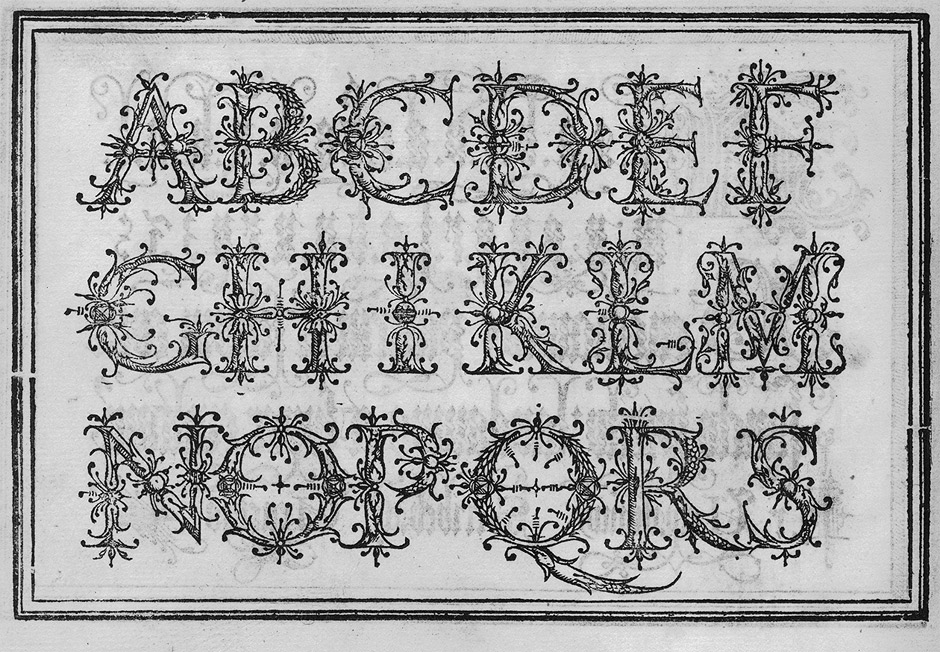 A B C D E F
G H I K L M
N O P Q R S